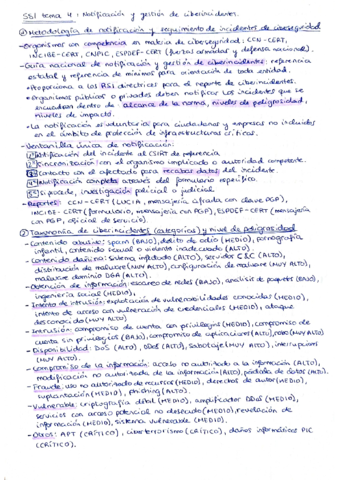 SSI tema 4: Notificación y gestión de ciberincidentes.
① Metodología de notificación y seguimiento de incidentes de ciberseguridad
-Organismos con competencia en materia de ciberseguridad: CCN-CERT,
INCIBE-CERT, CNPIC, ESPDEF-CERT (fuerzas armadas y defensa nacional).
-Guía nacional de notificación y gestión de ciberincidentes: referencia
estatal y referencia de mínimos para orientación de toda entidad.
•Proporciona a los RSI directrices para el reporte de ciberincidentes.
•Organismos públicos o privados deben notificar los incidentes que se
encuadren dentro de: alcance de la norma, niveles de peligrosidad,
niveles de impacto.
•La notificación es voluntaria para ciudadanos y empresas no incluidos
en el ámbito de protección de infraestructuras críticas.
-Ventanilla única de notificación:
1º Notificación del incidente al CSIRT de referencia
2º Sincronización con el organismo implicado o autoridad competente.
3º Contacto con el afectado para recabar datos del incidente.
4º Notificación completa a través del formulario específico.
5º Si procede, investigación policial o judicial
-Reportes: CCN-CERT (LUCIA, mensajería cifrada con clave PGP),
INCIBE-CERT (formulario, mensajería con PGP), ESPDEF-CERT (mensajería
con PGP, oficial de servicio).
② Taxonomía de ciberincidentes (categorías) y nivel de peligrosidad
-Contenido abusivo: spam (BAJO), delito de odio (MEDIO), pornografía
infantil, contenido sexual o violento inadecuado (ALTO)
-Contenido dañino: sistema infectado (ALTO), servidor C&C (ALTO),
distribución de malware (MUY ALTO), configuración de malware (MUY ALTO),
malware dominio DGA (ALTO)
-Obtención de información: escaneo de redes (BAJO), análisis de paquetes (BAJO),
ingeniería social (MEDIO)
-Intento de intrusión: explotación de vulnerabilidades conocidas (MEDIO),
intento de acceso con vulneración de credenciales (MEDIO), ataque
desconocido (MUY ALTO)
-Intrusión: compromiso de cuenta con privilegios (MEDIO), compromiso de
cuenta sin privilegios (BAJO), compromiso de aplicaciones (ALTO), robo (MUY ALTO)
-Disponibilidad: DoS (ALTO), DDoS (ALTO), sabotaje (MUY ALTO), interrupciones
(MUY ALTO).
-Compromiso de la información: acceso no autorizado a la información (ALTO),
modificación no autorizada de la información (ALTO), pérdida de datos (ALTO).
-Fraude: uso no autorizado de recursos (MEDIO), derechos de autor (MEDIO),
suplantación (MEDIO), phishing (ALTO).
-Vulnerable: criptografía débil (MEDIO), amplificador DDoS (MEDIO),
servicios con acceso potencial no deseado (MEDIO), revelación de
información (MEDIO), sistema vulnerable (MEDIO).
-Otros: APT (CRÍTICO), ciberterrorismo (CRÍTICO), daños informáticos PIC
(CRÍTICO).